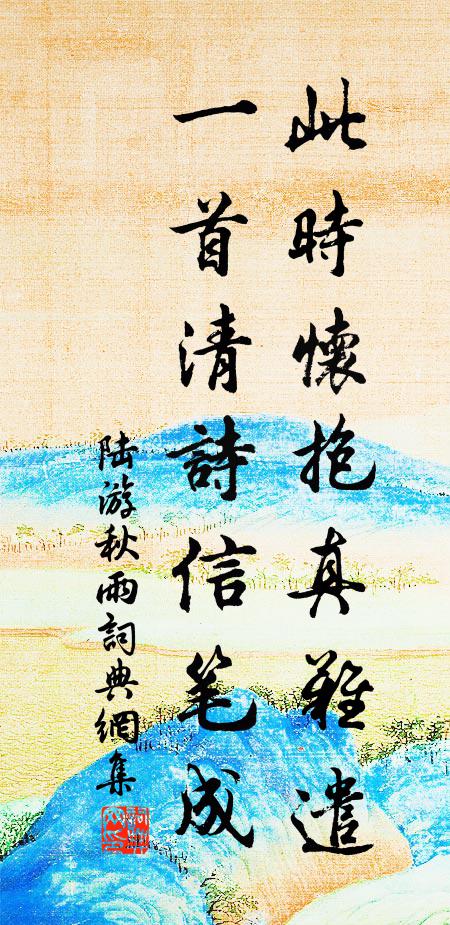 此時懷抱真難遣
一首清詩信笔成
陆游秋雨詞典網集